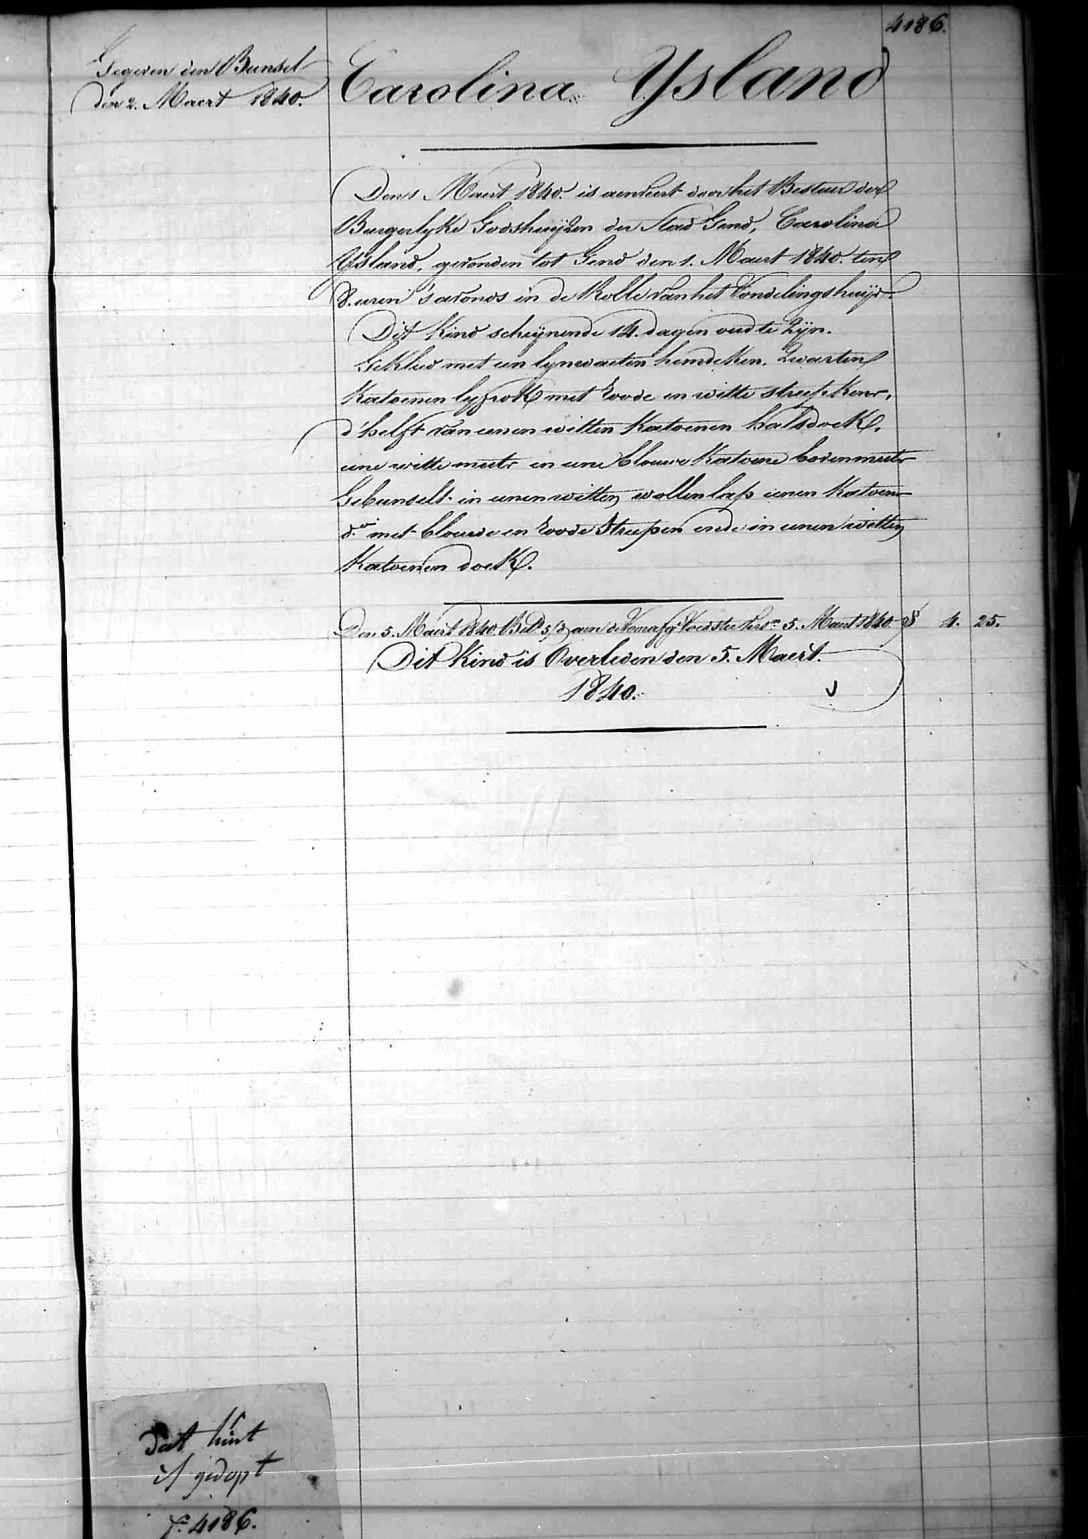 4186.
Gegeven den Bunsel
den 2. Maert 1840.
Carolina Ysland
Den 1 Maert 1840. is aenveert door het Bestuer der
Burgerlyke Godshuyzen der Stad Gend, Carolina
Ysland, gevonden tot Gend den 1. Maert 1840. ten
8. uren 's avonds in de Rolle van het Vondelingshuys.
Dit Kind schynende 14. dagen oud te Zyn.
Gekleed met een lynwaeten hemdeken. Zwarten
Katoenen lyfrok met roode en witte streepken,
d'helft van eenen witten Katoenen halsdoek,
eene witte muts en eene blauwe Katoene bovenmuts
Gebunselt in eenen witten wollen lap eenen Katoene
do. met blauwe en roode Streepen ende in eenen witten
Katoenen doek.
Den 5. Maert 1840. 5/3 aen de Voedster 5. Maert 1840. 4. 25.
Dit Kind is Overleden den 5. Maert.
1840.
dat kint
is gedopt
4186.